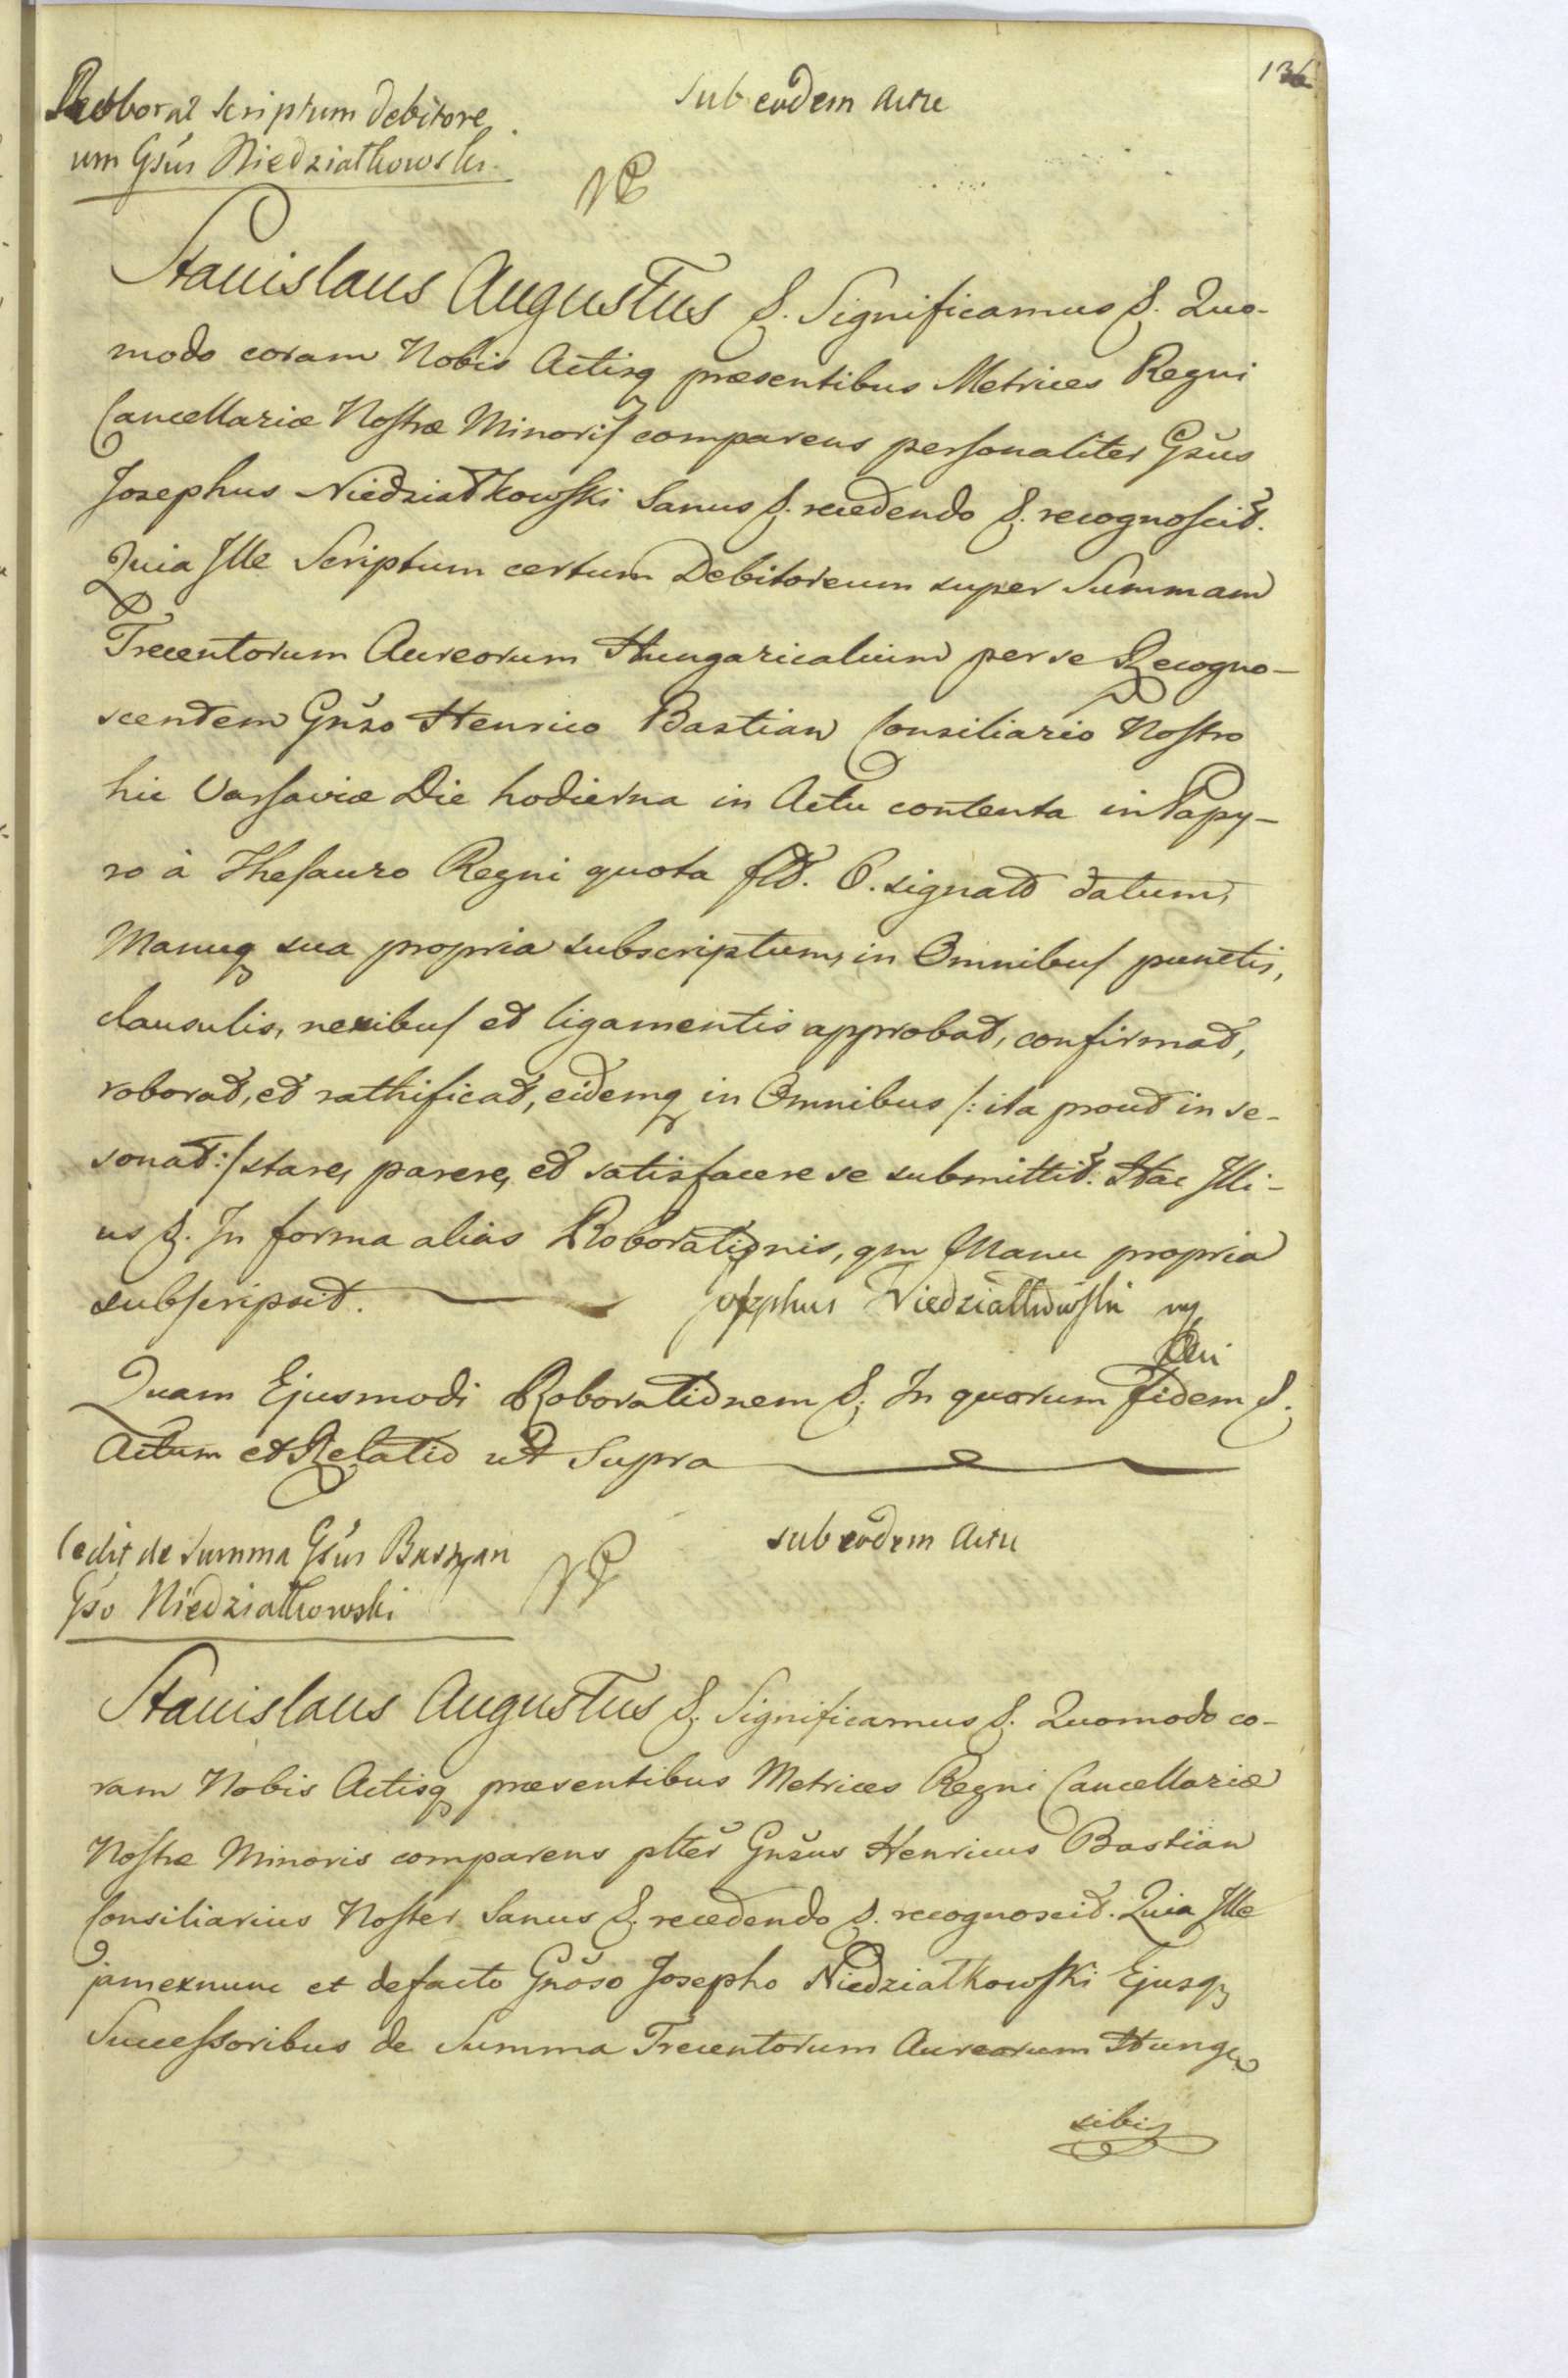 136
Roborat scriptum debitore
um Gsus Niedziałkowski.
sub eodem Actu
Stanislaus Augustus &. Significamus &. Quo-
modo coram Nobis Actisq praesentibus Metrices Regni
Cancellariæ Nostræ Minoris comparens personaliter Gsus
Josephus Niedziałkowski Sanus &. recedendo &. recognoscit.
Quia Ille Scriptum certum Debitoreum super Summam
Trecentorum Aureorum Hungaricalium per se Recogno-
scentem Gnso Henrico Bastian Consiliario Nostro
hic Varsaviæ Die hodierna in Actu contenta in Papy-
ro à Thesauro Regni quota fl. 6. signato datum,
Manuq sua propria subscriptum, in Omnibus punctis,
clausulis, nexibus et ligamentis approbat, confirmat,
roborat, et rathificat, eidemq in Omnibus /: ita prout in se-
sonat :/ stare, parere, et satisfacere se submittit. Hac Illi-
us &. In forma alias Roborationis, qm Manu propria
subscripsit. Josephus Niedziałkowski mp
Quam Ejusmodi Roborationem &. In quorum fidem &.
Actum et Relatio ut Supra
Cedit de summa Gsus Bastyan
Gso Niedziałkowski
sub eodem Actu
Stanislaus Augustus &. Significamus &. Quomodo co-
ram Nobis Actisq praesentibus Metrices Regni Cancellariæ
Nostræ Minoris comparens plter Gnsus Henricus Bastian
Consiliarius Noster Sanus &. recedendo &. recognoscit. Quia Ille
jamexnunc et defacto Gnoso Josepho Niedziałkowski Ejusq
Successoribus de Summa Trecentorum Aureorum Hung
sibi